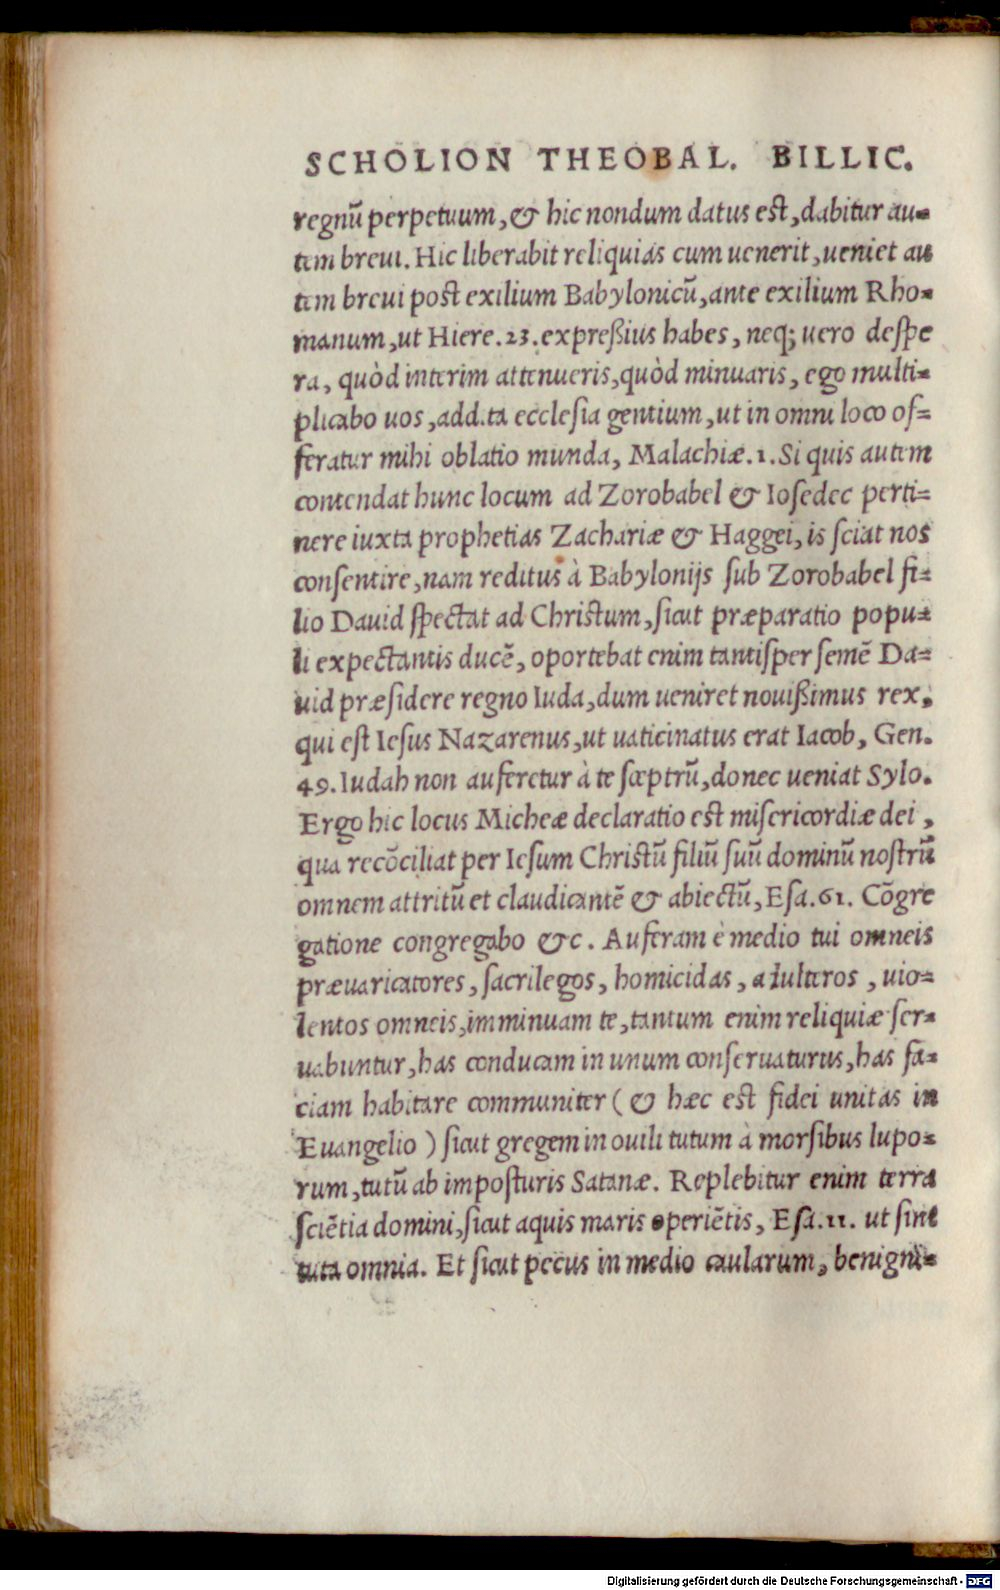 SCHOLION THEOBAL. BILLIC.
regnũ perpetuum, & hic nondum datus est, dabitur au=
tem breui. Hic liberabit reliquias cum uenerit, ueniet au
tem breui post exilium Babylonicũ, ante exilium Rho=
manum, ut Hiere. 23. expreßius habes, neq; uero despe
ra, quòd interim attenueris, quòd minuaris, ego multi=
plicabo uos, addita ecclesia gentium, ut in omni loco of=
feratur mihi oblatio munda, Malachiæ. 1. Si quis autem
contendat hunc locum ad Zorobabel & Iosedec perti=
nere iuxta prophetias Zachariæ & Haggei, is sciat nos
consentire, nam reditus à Babylonijs sub Zorobabel fi=
lio Dauid spectat ad Christum, sicut præparatio popu=
li expectantis ducẽ, oportebat enim tantisper semẽ Da=
uid præsidere regno Iuda, dum ueniret nouißimus rex,
qui est Iesus Nazarenus, ut uaticinatus erat Iacob, Gen.
49. Iudah non auferetur à te sceptrũ, donec ueniat Sylo.
Ergo hic locus Micheæ declaratio est misericordiæ dei,
qua recõciliat per Iesum Christũ filiũ suũ dominũ nostrũ
omnem attritũ et claudicantẽ & abiectũ, Esa. 61. Cõgre
gatione congregabo &c. Auferam è medio tui omneis
præuaricatores, sacrilegos, homicidas, adulteros, uio=
lentos omneis, imminuam te, tantum enim reliquiæ ser=
uabuntur, has conducam in unum conseruaturus, has fa=
ciam habitare communiter (& hæc est fidei unitas in
Euangelio) sicut gregem in ouili tutum à morsibus lupo=
rum, tutũ ab imposturis Satanæ. Replebitur enim terra
sciẽtia domini, sicut aquis maris operiẽtis, Esa. 11. ut sint
tuta omnia. Et sicut pecus in medio caularum, benigni=
Digitalisierung gefördert durch die Deutsche Forschungsgemeinschaft - DFG